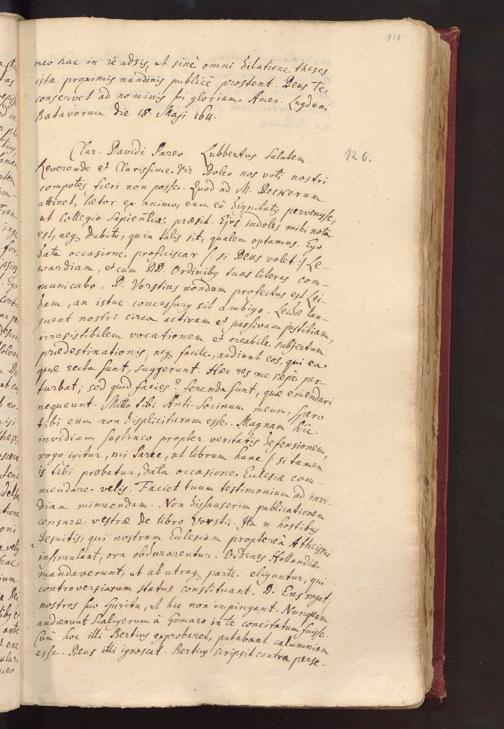 131
meo hac in re adsis, ut sine omni dilatione theses
istæ proximis nundinis publicè prostent. Deus te
conservet ad nominis sui gloriam. Amen. Lugduni
Batavorum die 18. Maji 1611.
126.
Clar. Davidi Pareo Lubbertus Salutem.
Reverende et Clarissime Vir. Doleo nos voti nostri
compotes fieri non posse. Quod ad M. Deckerum
attinet, lætor ex animo, eum eò dignitatis pervenisse,
ut Collegio Sapientiæ præsit. Ejus indoles mihi nota
est, neq dubito, quin talis sit, qualem optamus. Ego
data occasione proficiscar (si Deus volet) Le-
wardiam, et cum DD. Ordinibus tuas literas com-
municabo. D. Vorstius nondum profectus est Lei-
dam, an istuc concessurus sit ambigo. Leidæ lan-
guent nostri circa activam et passivam justitiam,
irresistibilem vocationem et creabile subjectum
prædestinationis, neq facile audiunt eos, qui ea
quæ recta sunt, suggerunt. Hæc res me sæpe per-
turbat, sed quid facies? ferenda sunt, quæ emendari
nequeunt. Mitto tibi Anti-Socinum meum, spero
tibi eum non displiciturum esse. Magnam hic
invidiam sustineo propter veritatis defensionem,
rogo igitur, mi Paree, ut librum hunc (si tamen
is tibi probatur) data occasione Ecclesiæ com-
mendare velis. Faciet tuum testimonium ad invi-
diam minuendam. Non dissuaserim publicationem
censuræ vestræ de libro Vorstii. Ita n. hostibus
Jesuitis, qui nostram Ecclesiam propterea Atheismi
insimulant, ora obdurarentur. Ordines Hollandiæ
mandaverunt, ut ab utraq parte eligantur, qui
controversiarum status constituant. D. Ens rogat
nostros suo spiritu, ut hic non impingant. Nunquam
audierunt Scaligerum à Gomaro in te concitatum fuisse.
Cum hoc illi Bertius exprobaret, putabant calumniam
esse. Deus illi ignoscat. Bertius scripsit contra perse-